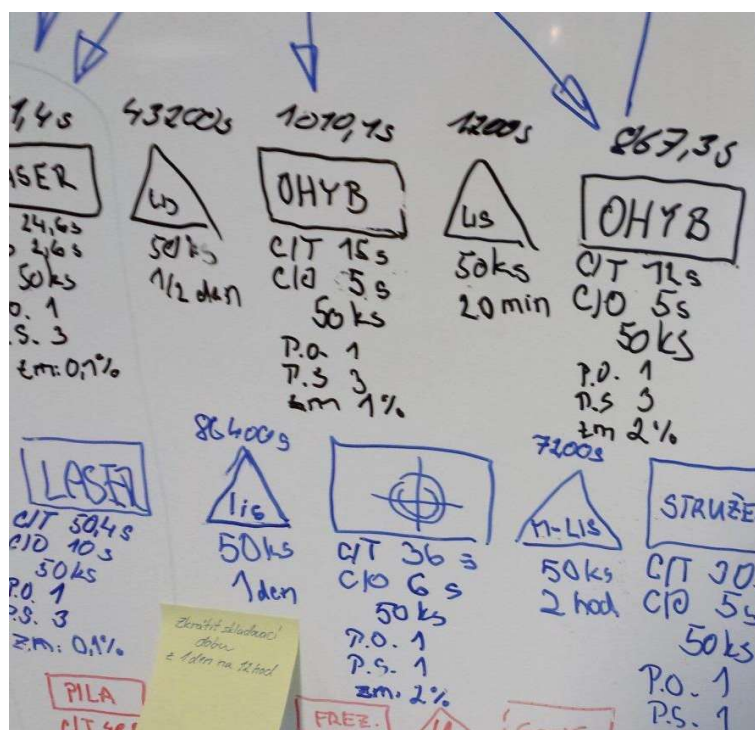 1,4s 43200s 1010,1s 1200s 867,3s
ASER
24,6s
2,6s
50ks
O. 1
.S. 3
zm: 0,1%
LIS
50ks
1/2 den
OHYB
C/T 15s
C/O 5s
50ks
P.O. 1
P.S 3
zm 1%
LIS
50ks
20 min
OHYB
C/T 12s
C/O 5s
50ks
P.O. 1
P.S 3
zm 2%
LASER
C/T 50,4s
C/O 10s
50ks
P.O. 1
P.S. 3
zm: 0,1%
86400s
lis
50ks
1 den
C/T 36 s
C/O 6 s
50ks
P.O. 1
P.S. 1
zm. 2%
7200s
M-LIS
50ks
2 hod
STRUŽE
C/T 30
C/O 5s
50ks
P.O. 1
P.S. 1
Zkrátit skladovací
dobu
z 1 den na 12 hod
PILA
C/T
FREZ.